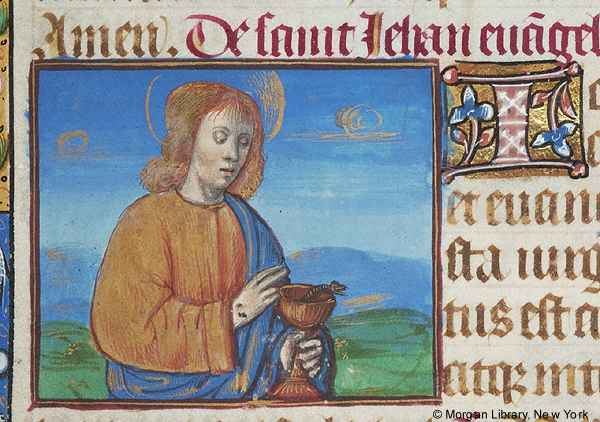 Amen. De saint Jehan euãgel
I
et euan
sta uirg
tus est a
atqꝫ int
© Morgan Library, New York